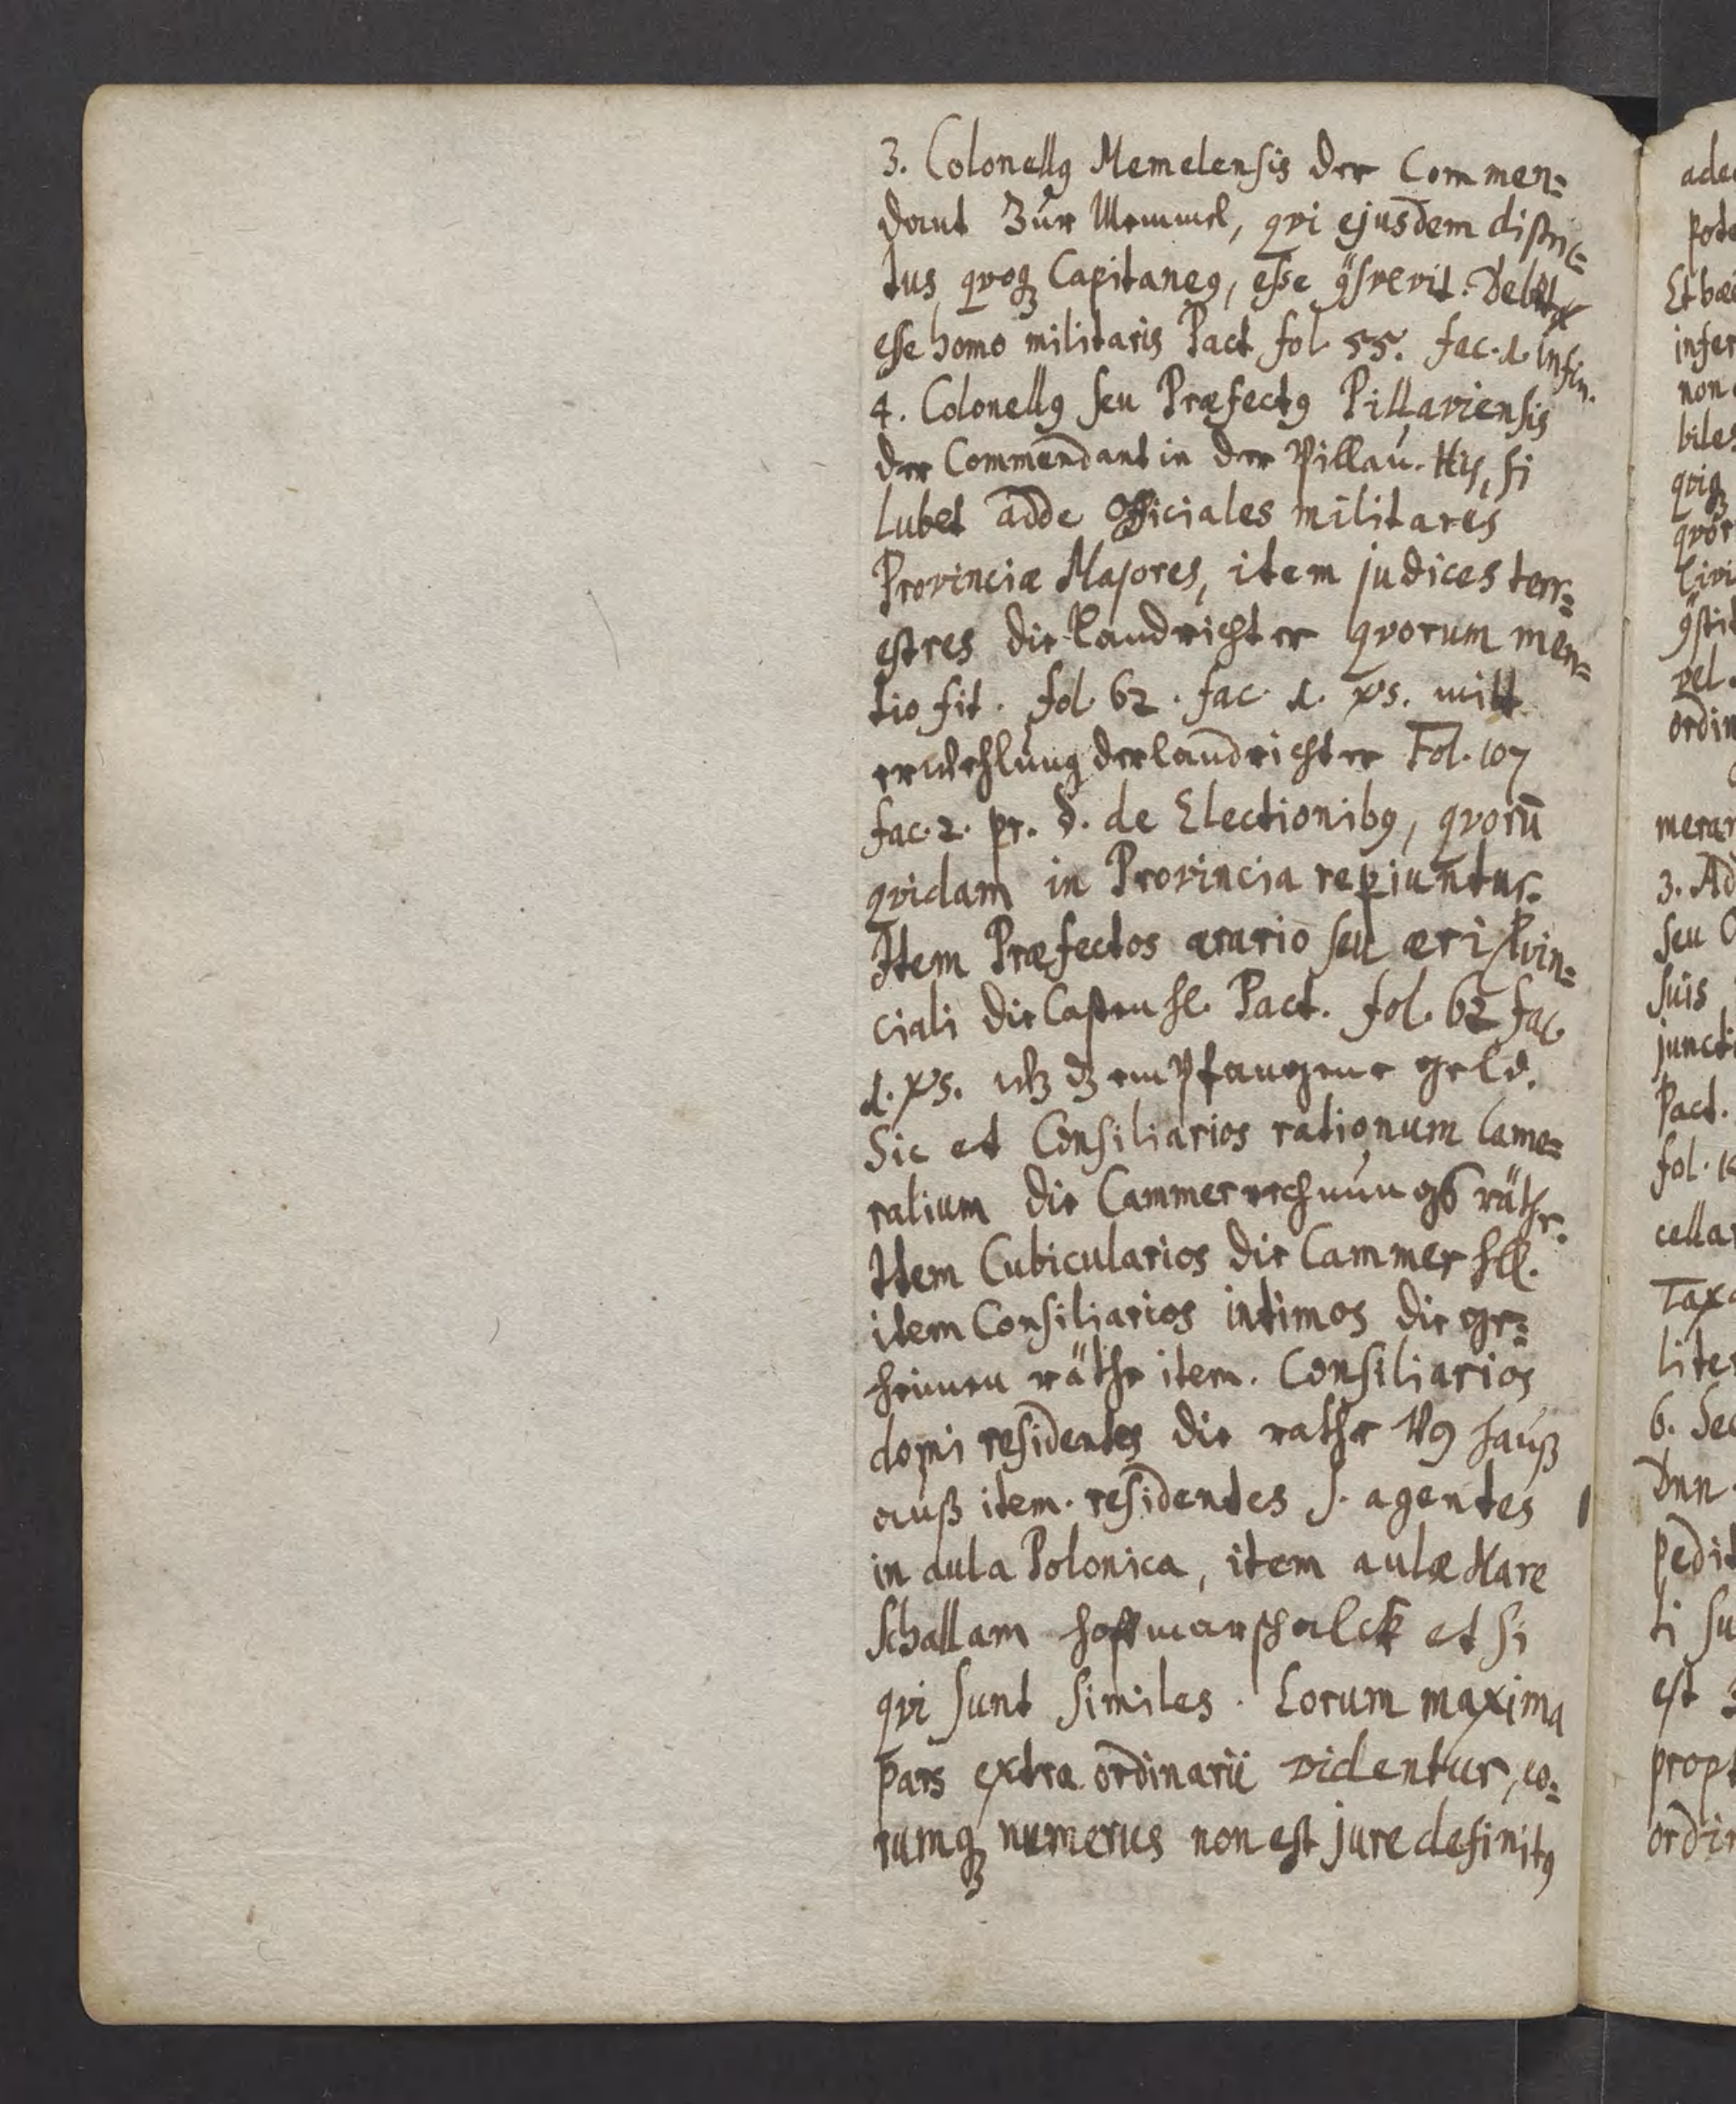 3. Colonellꝰ Memelensis der Commen=
dant Zur Memmel, qvi ejusdem distric=
tus qvoqꝫ Capitaneꝰ, esse ꝯsvevit. Debet
esse homo militaris Pact fol. 55. fac. 1. in fin.
4. Colonellꝰ seu Præfectꝰ Pillaviensis
der Commendant in der Pillau. His, si
lubet adde Officiales militares
Provinciæ Majores, item judices terr=
estres die Landrichter qvorum men=
tio fit. fol. 62. fac. 1. xs. mitt
erwehlung der landrichter Fol. 107
fac. 2. pr. §. de Electionibꝰ, qvorū
qvidam in Provincia repiuntur.
Item Præfectos ærario seu æri Pvin=
ciali die Casten H. Pact. fol. 62 fac.
1. xs. empfangene geld.
Sic et Consiliarios rationum Came=
ralium die Cammerrechnungs räthe.
Item Cubicularios die Cammer HH.
item Consiliarios intimos die ge=
heimen räthe item. Consiliarios
domi residentes die rathe hauß
auß item. residentes s. agentes
in aula Polonica, item aulæ Mare
schallam hoffmarschalck et si
qvi sunt similes. Eorum maxima
pars extra ordinarii videntur, eo=
rumqꝫ numerus non est jure definitꝰ